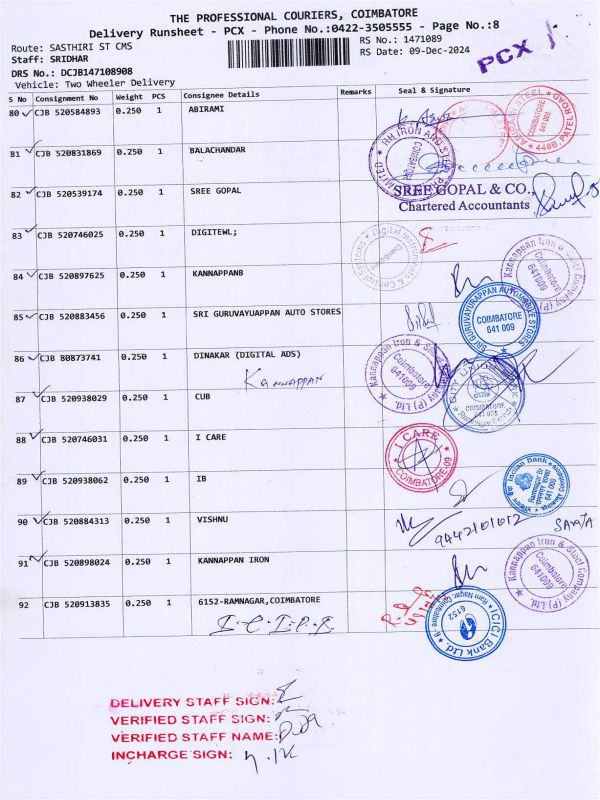 THE PROFESSIONAL COURIERS, COIMBATORE
Delivery Runsheet - PCX - Phone No.:0422-3505555 - Page No.:8
Route: SASTHIRI ST CMS
RS No.: 1471089
Staff: SRIDHAR
RS Date: 09-Dec-2024
PCX
DRS No.: DCJB147108908
Vehicle: Two Wheeler Delivery
S No Consignment No Weight PCS Consignee Details Remarks Seal & Signature
80 CJB 520584893 0.250 1 ABIRAMI
81 CJB 520831869 0.250 1 BALACHANDAR
82 CJB 520539174 0.250 1 SREE GOPAL
SREE GOPAL & CO.,
Chartered Accountants
83 CJB 520746025 0.250 1 DIGITEWL;
84 CJB 520897625 0.250 1 KANNAPPANB
Kannappan Iron & Steel Company (P) Ltd.
Coimbatore
641009
85 CJB 520883456 0.250 1 SRI GURUVAYUAPPAN AUTO STORES
SRI GURUVAYURAPPAN AUTOMOBILE STORES
COIMBATORE
641 009
86 CJB 80873741 0.250 1 DINAKAR (DIGITAL ADS)
KANNAPPAN
Kannappan Iron & Steel Company (P) Ltd.
Coimbatore
641009
87 CJB 520938029 0.250 1 CUB
88 CJB 520746031 0.250 1 I CARE
I CARE
COIMBATORE-09
89 CJB 520938062 0.250 1 IB
Indian Bank
90 CJB 520884313 0.250 1 VISHNU
9442101012
91 CJB 520898024 0.250 1 KANNAPPAN IRON
Kannappan Iron & Steel Company (P) Ltd.
Coimbatore
641009
92 CJB 520913835 0.250 1 6152-RAMNAGAR,COIMBATORE
ICICI Bank Ltd.
Ram Nagar, Coimbatore
6152
DELIVERY STAFF SIGN:
VERIFIED STAFF SIGN:
VERIFIED STAFF NAME:
INCHARGE SIGN: